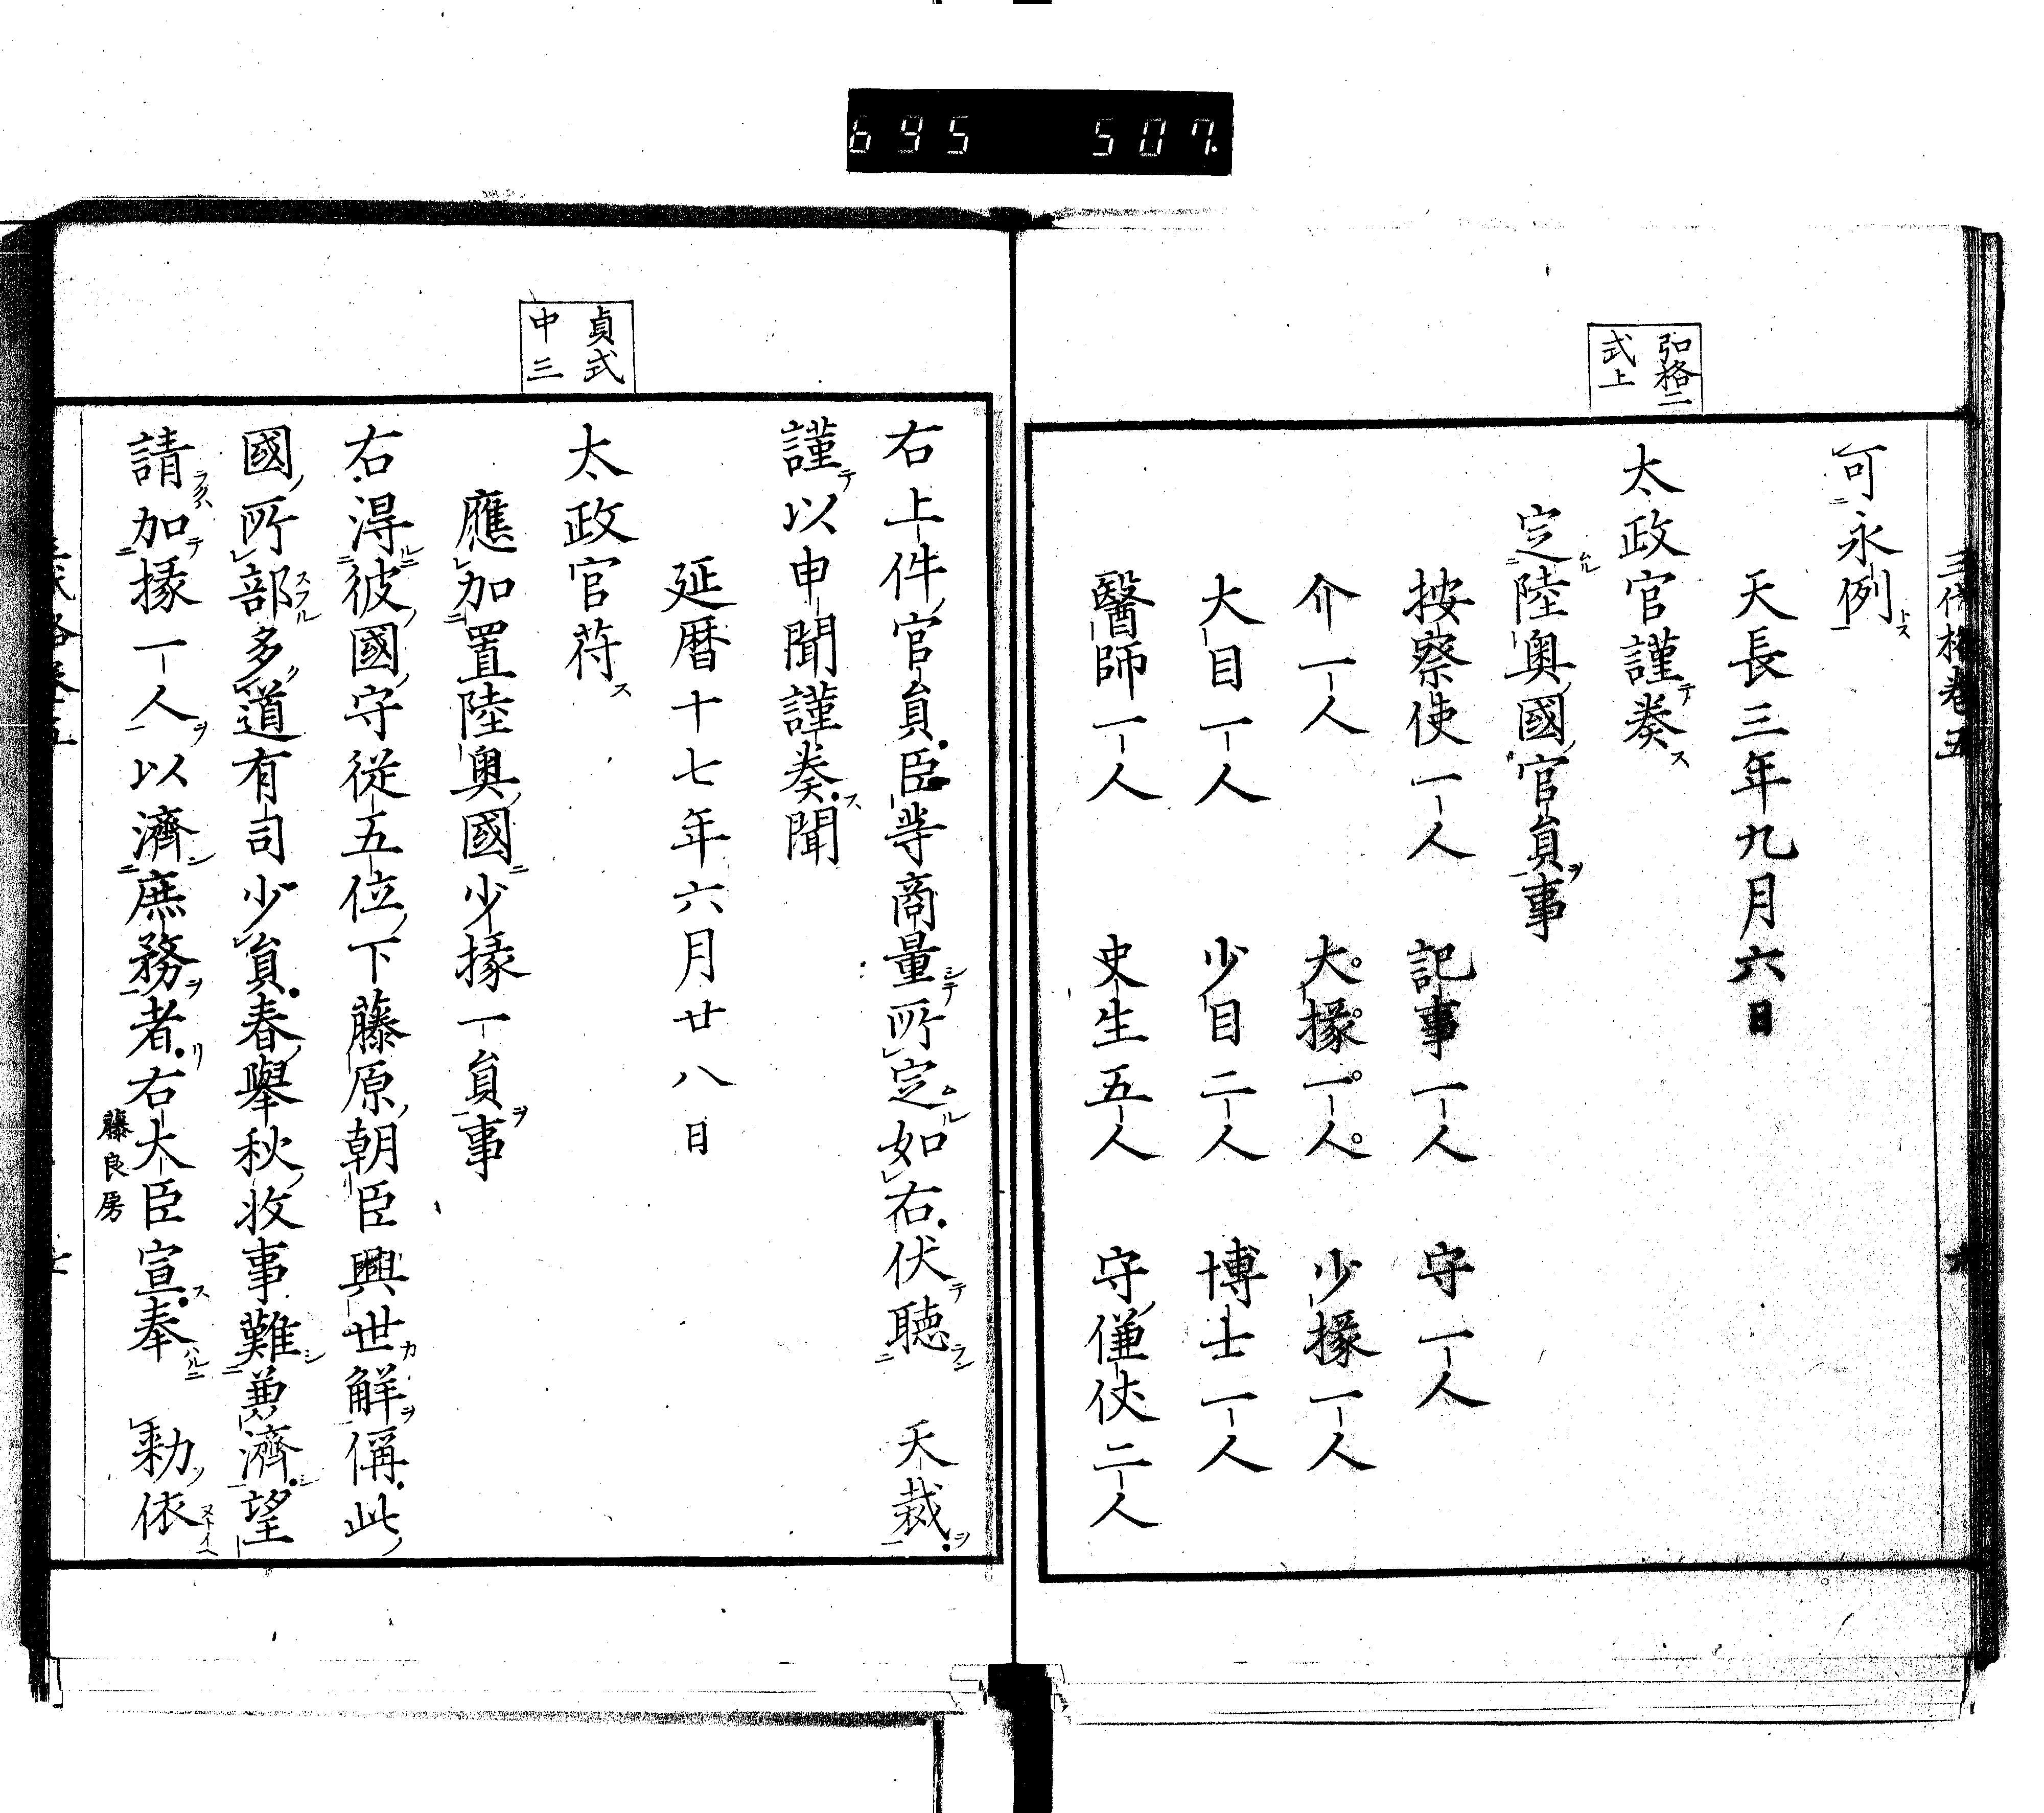 695 507.
三代格卷五
六
弘格二
式上
可永例
天長三年九月六日
太政官謹奏
定陸奧國官員事
按察使一人 記事一人 守一人
介一人 大掾一人 少掾一人
大目一人 少目二人 博士一人
醫師一人 史生五人 守傔仗二人
右上件官員臣等商量所定如右伏聽 天裁
謹以申聞謹奏聞
延曆十七年六月廿八日
貞式
中三
太政官符
應加置陸奧國少掾一員事
右得彼國守從五位下藤原朝臣興世解偁此
國所部多道有司少員春擧秋收事難兼濟望
請加掾一人以濟庶務者右大臣宣奉 勅依
藤良房